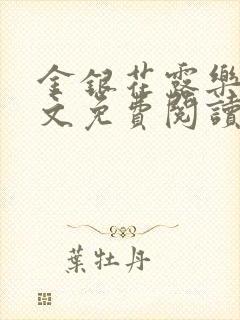 金銀花露樂
文免費閱讀
葉牡丹